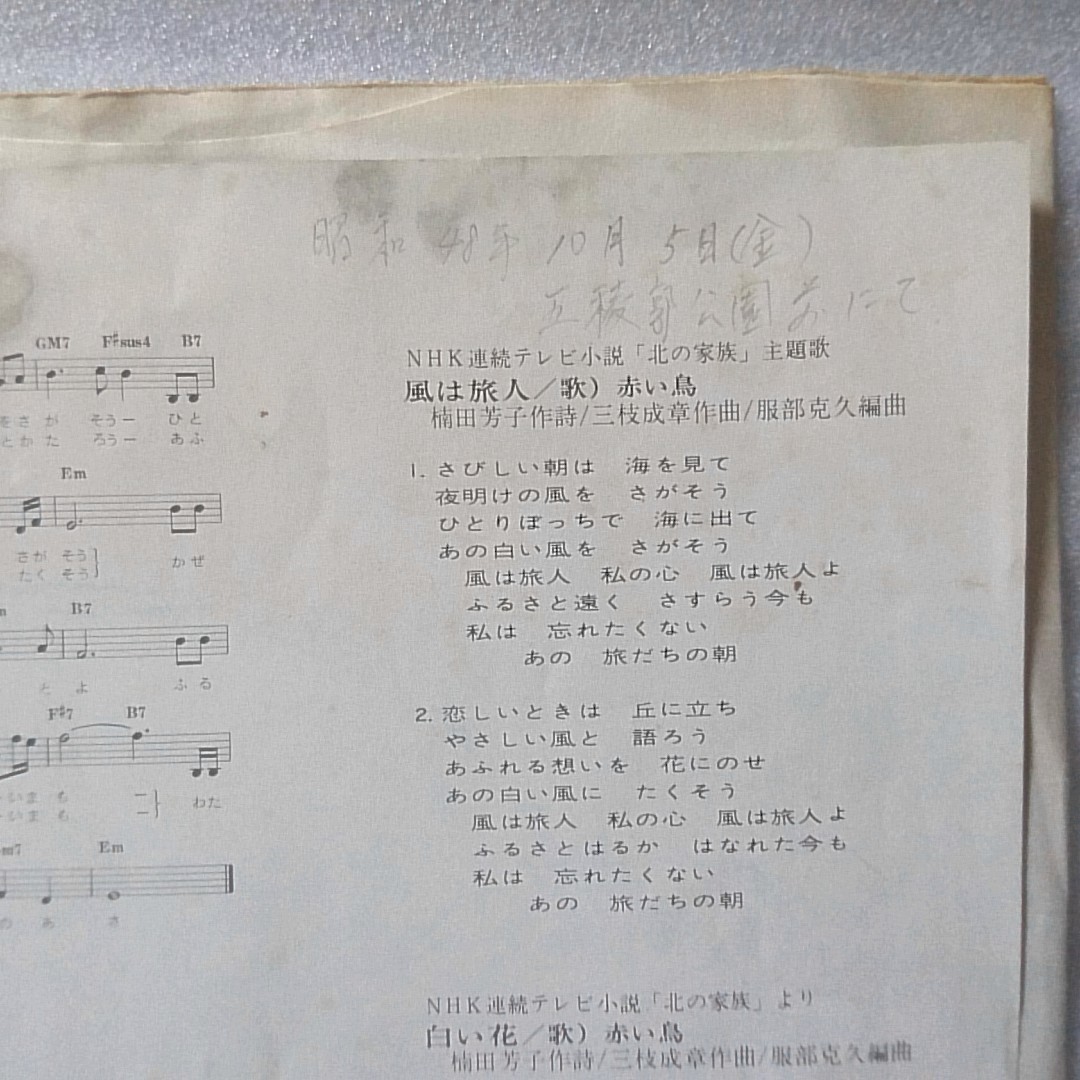 昭和48年10月5日(金)
五稜郭公園前にて
GM7 F#sus4 B7
をさが そうー ひと
とかた ろうー あふ
Em
さが そう} かぜ
たく そう
B7
とよ ふる
F#7 B7
いまも ー} わた
いまも ー
m7 Em
のあ さ
NHK連続テレビ小説「北の家族」主題歌
風は旅人/歌)赤い鳥
楠田芳子作詩/三枝成章作曲/服部克久編曲
1. さびしい朝は 海を見て
夜明けの風を さがそう
ひとりぼっちで 海に出て
あの白い風を さがそう
風は旅人 私の心 風は旅人よ
ふるさと遠く さすらう今も
私は 忘れたくない
あの 旅だちの朝
2. 恋しいときは 丘に立ち
やさしい風と 語ろう
あふれる想いを 花にのせ
あの白い風に たくそう
風は旅人 私の心 風は旅人よ
ふるさとはるか はなれた今も
私は 忘れたくない
あの 旅だちの朝
NHK連続テレビ小説「北の家族」より
白い花/歌)赤い鳥
楠田芳子作詩/三枝成章作曲/服部克久編曲